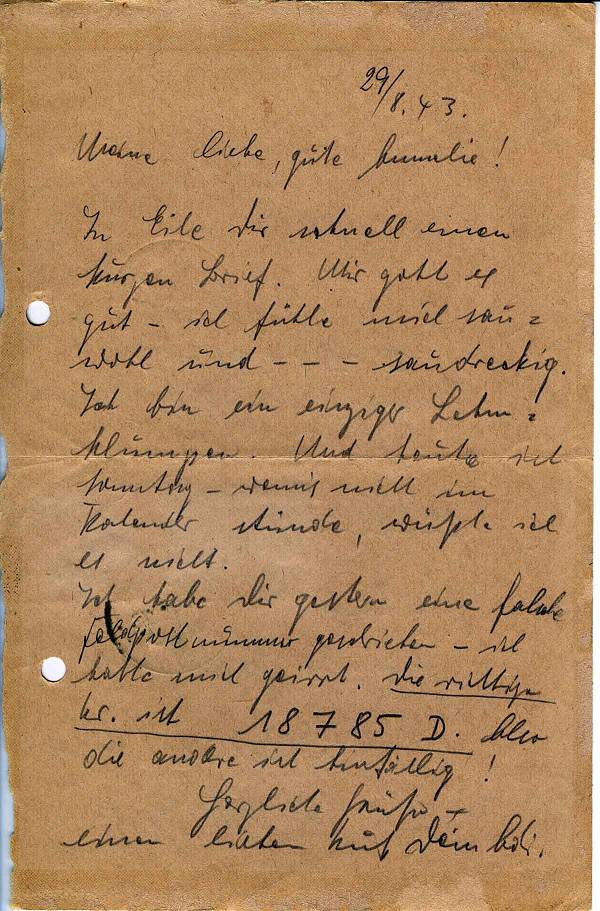 29/8.43.
Meine liebe, gute Annelie!
In Eile Dir schnell einen
kurzen Brief. Mir geht es
gut – ich fühle mich sau=
wohl und – – – saudreckig.
Ich bin ein einziger Lehm=
klumpen. Und heute ist
Sonntag – wenns nicht im
Kalender stünde, wüßte ich
es nicht.
Ich habe Dir gestern eine falsche
Feldpostnummer geschrieben – ich
hatte mich geirrt. Die richtige
Nr. ist 18785 D. Also
die andere ist hinfällig!
Herzliche Grüße –
einen lieben Kuß Dein